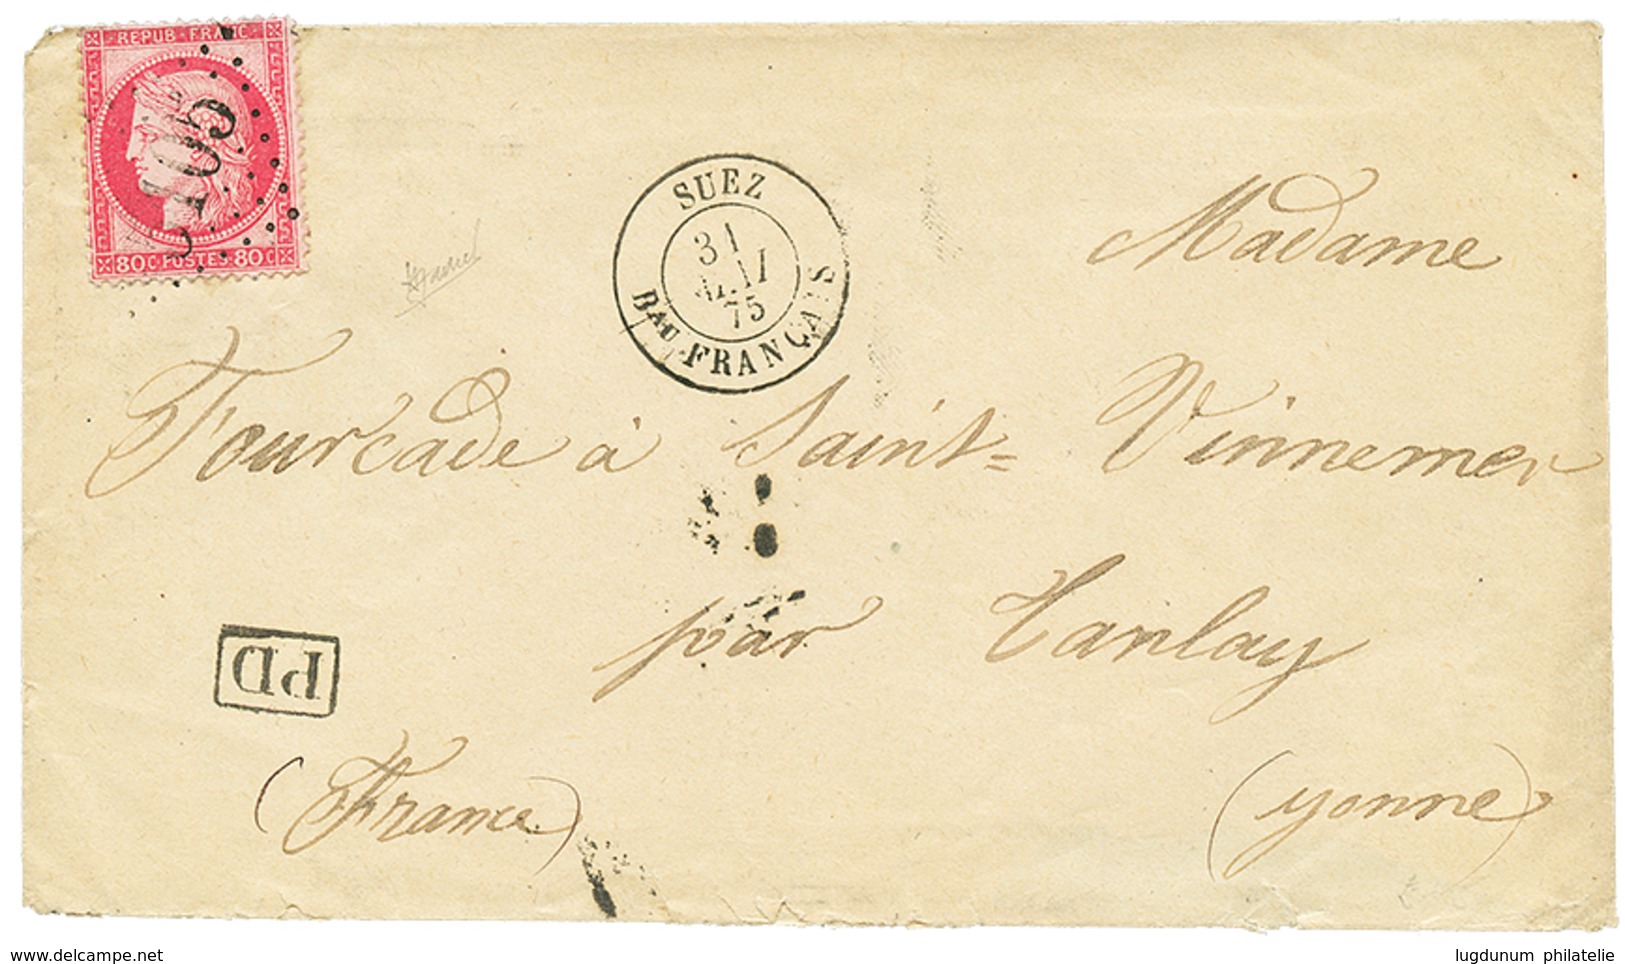 REPUB · FRANC
5105
80C POSTES 80C
SUEZ
31
MAI
75
Bau FRANÇAIS
Madame
Fourcade à Saint=Vinnemer
par Tanlay
PD
(France)
(yonne)
delcampe.net
lugdunum philatelie